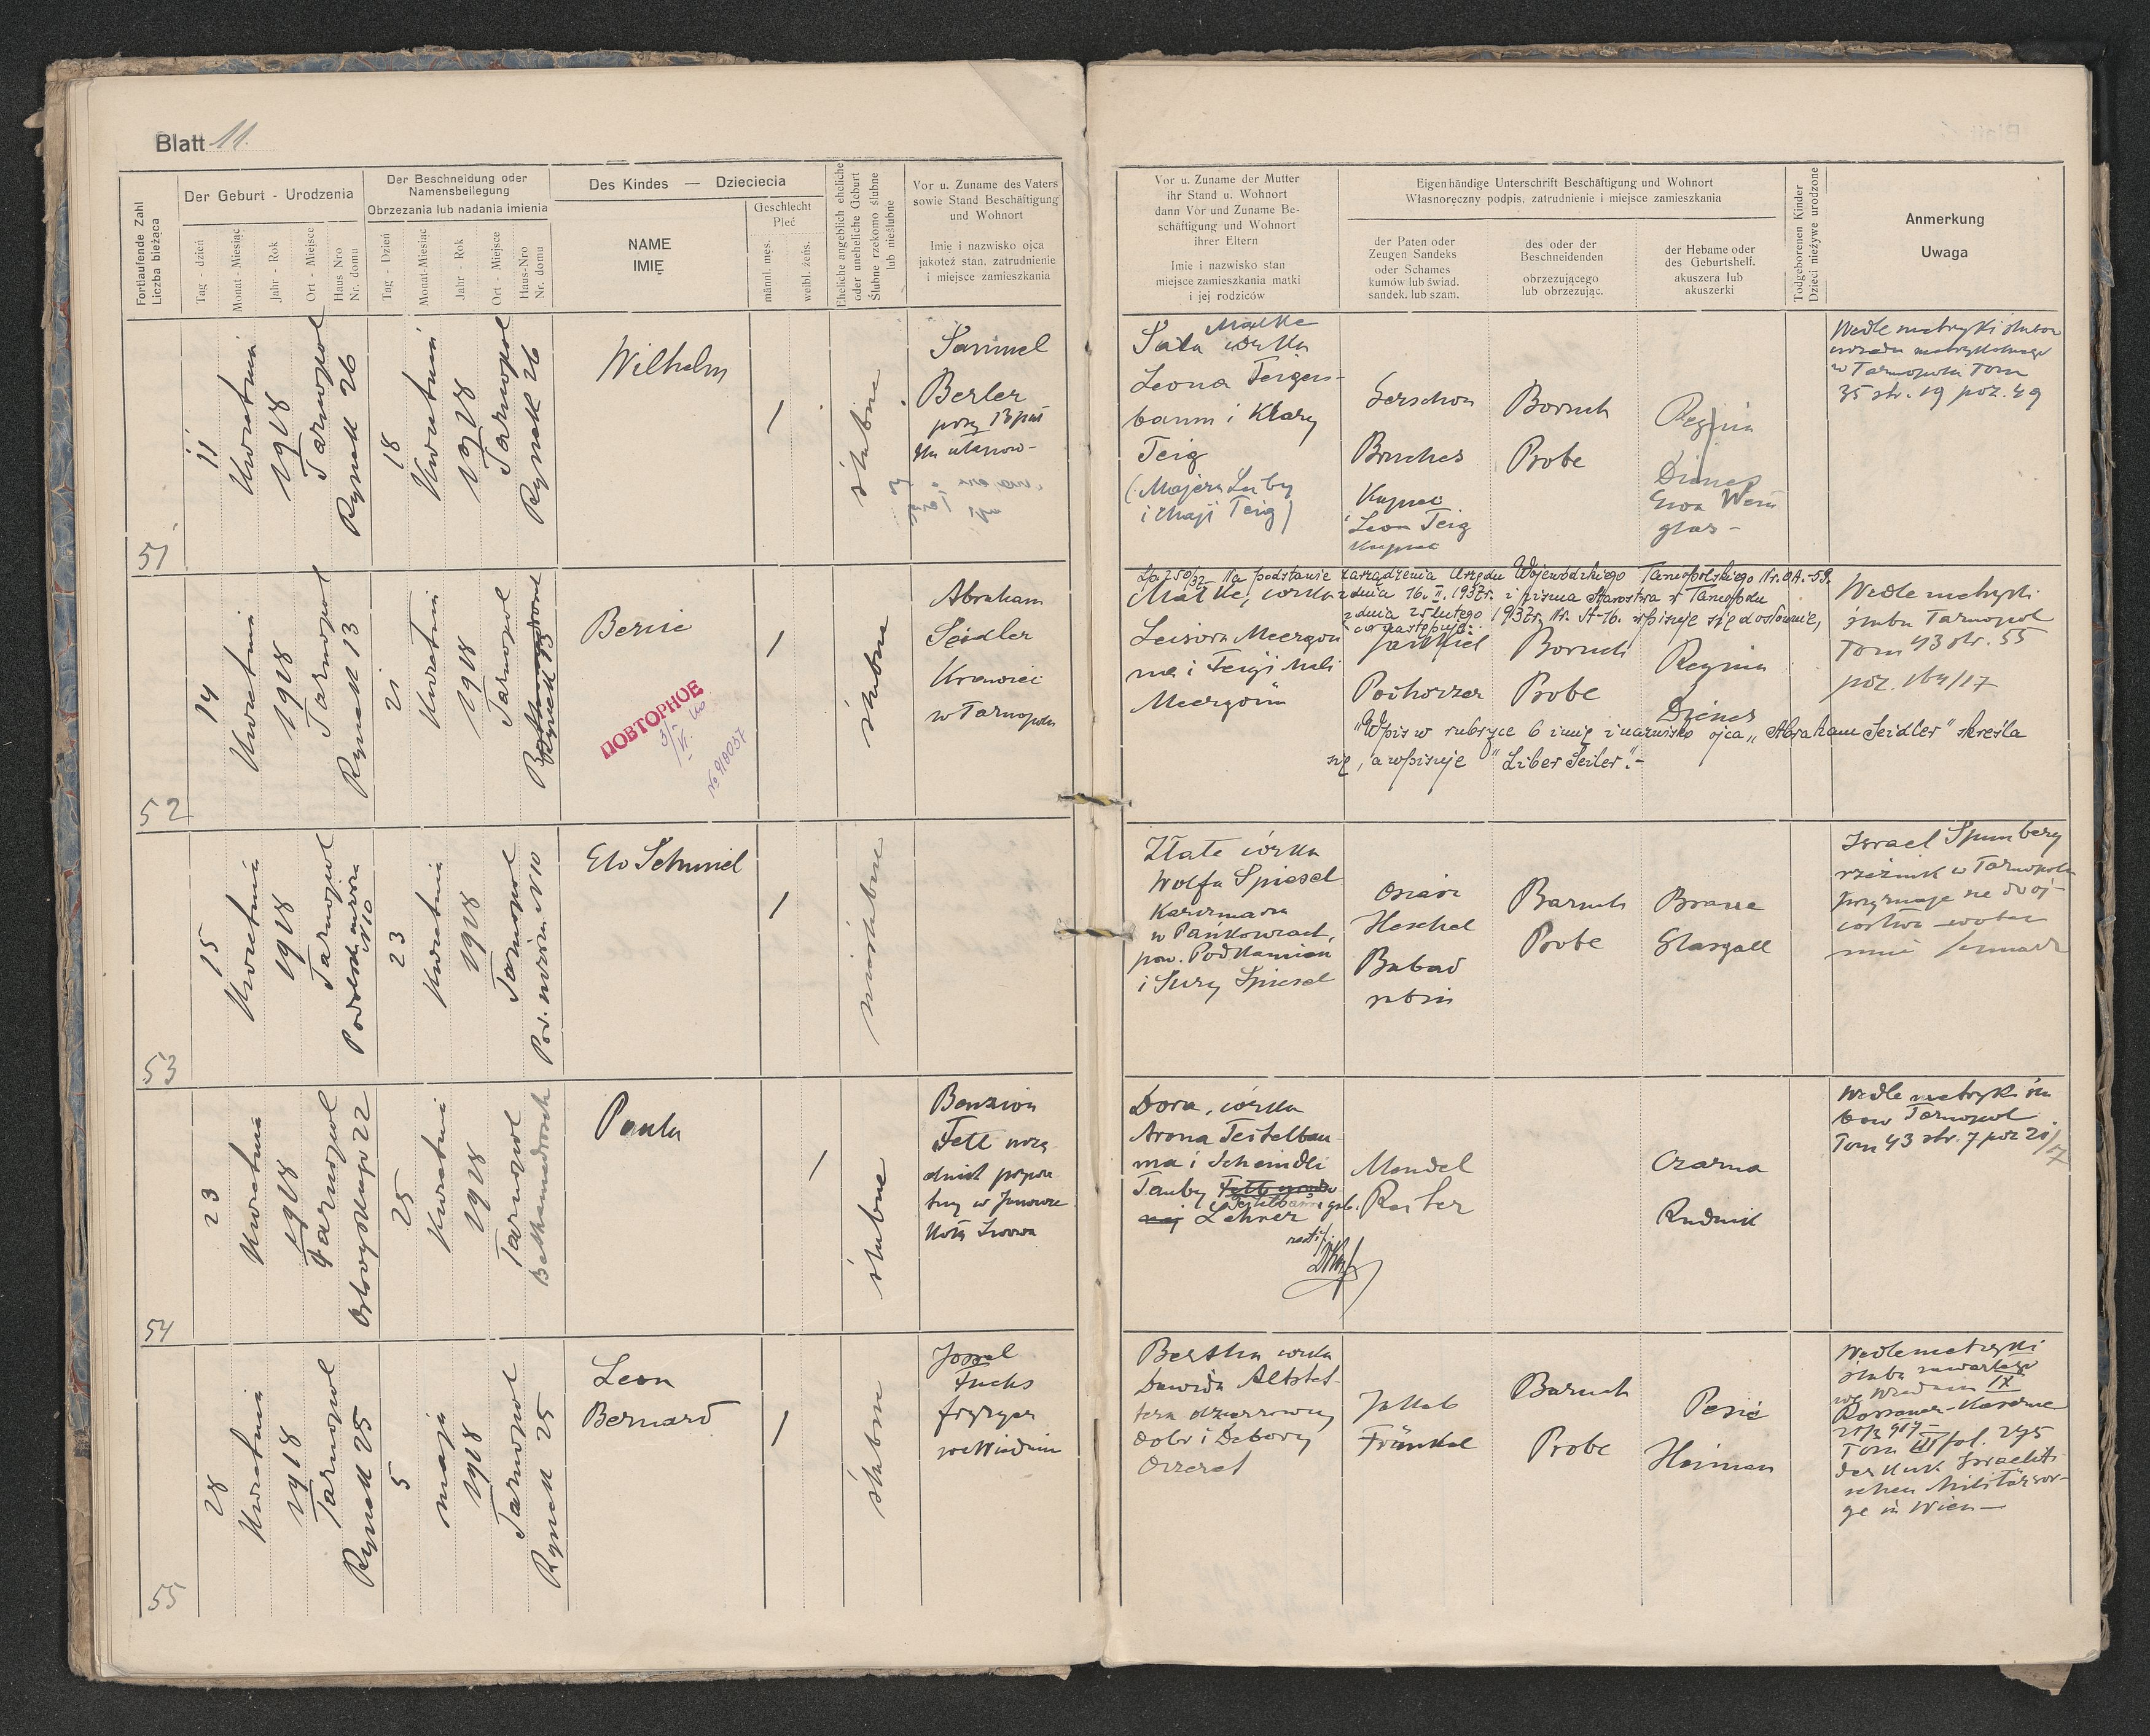 Blatt 11.
Fortlaufende Zahl
Liczba bieżąca
Der Geburt - Urodzenia
Tag - dzień
Monat - Miesiąc
Jahr - Rok
Ort - Miejsce
Haus Nro
Nr. domu
Der Beschneidung oder
Namensbeilegung
Obrzezania lub nadania imienia
Tag - Dzień
Monat-Miesiąc
Jahr - Rok
Ort - Miejsce
Haus-Nro
Nr. domu
Des Kindes — Dzieciecia
NAME
IMIĘ
Geschlecht
Płeć
männl. męs.
weibl. żeńs.
Eheliche angeblich eheliche
oder uneheliche Geburt
Ślubne rzekomo ślubne
lub nieślubne
Vor u. Zuname des Vaters
sowie Stand Beschäftigung
und Wohnort
Imię i nazwisko ojca
jakoteż stan, zatrudnienie
i miejsce zamieszkania
Vor u. Zuname der Mutter
ihr Stand u. Wohnort
dann Vor und Zuname Be-
schäftigung und Wohnort
ihrer Eltern
Imie i nazwisko stan
miejsce zamieszkania matki
i jej rodziców
Eigenhändige Unterschrift Beschäftigung und Wohnort
Własnoręczny podpis, zatrudnienie i miejsce zamieszkania
der Paten oder
Zeugen Sandeks
oder Schames
kumów lub świad.
sandek. lub szam.
des oder der
Beschneidenden
obrzezującego
lub obrzezując.
der Hebame oder
des Geburtshelf.
akuszera lub
akuszerki
Todgeborenen Kinder
Dzieci nieżywe urodzone
Anmerkung
Uwaga
51
11
Kwietnia
1928
Tarnopol
Rynek 26
18
Kwietnia
1928
Tarnopol
Rynek 26
Wilhelm
/
ślubne
Samuel
Berler
przy 13 puł
ku ułanów-
Malke
Sala córka
Leona Feigen-
baum i Klary
Teig
(Majera Luby
i Chaji Teig)
Gerschon
Bruches
Kupiec
i Leon Teig
Kupiec
Boruch
Probe
Regina
Dienes
Ewa Wein
glas -
Wedle metryki ślubu
urzędu metrykalnego
w Tarnopolu Tom
35 str. 19 poz. 49
52
14
Kwietnia
1928
Tarnopol
Rynek 13
21
Kwietnia
1928
Tarnopol
Rynek 13
Berie
ПОВТОРНОЕ
3/VI.
№ 910037
/
ślubne
Abraham
Seidler
Krawiec
w Tarnopolu
Lp. 250/37 Na podstawie zarządzenia Urzędu Wojewódzkiego Tarnopolskiego Nr. OA.-59.
z dnia 16. II. 1937r. i pisma Starostwa w Tarnopolu
z dnia 25 lutego 1937r. Nr. A-16. wpisuje się dosłownie,
co następuje:
Malke, córka
Leisora Meergrün
ma i Feigi Mali
Meergrün
Jachiel
Pochorzer
Boruch
Probe
Regina
Dienes
"Wpis w rubryce 6 imię i nazwisko ojca „Abraham Seidler" skreśla
się, a wpisuje "Liber Seiler".-
Wedle metryki
ślubu Tarnopol
Tom 43 str. 55
poz. 164/17
53
15
Kwietnia
1928
Tarnopol
N 10
23
Kwietnia
1928
Tarnopol
N 10
Elo Schmiel
/
nieślubne
Złate córka
Wolfa Spiesel
Karczmarza
w Pańkowcach,
pow. Podkamień
i Sury Spiesel
Osias
Heschel
Babad
rabin
Baruch
Probe
Brane
Glasgall
Israel Spumberg
rzeźnik w Tarnopolu
przyznaje się do oj-
costwa wobec
54
23
Kwietnia
1928
Tarnopol
Ostrogskiego 22
25
Kwietnia
1928
Tarnopol
Bethamidrosch
Paula
/
ślubne
Benzion
Fett
Dora, córka
Arona Teitelbau
ma i Scheindli
Tauby
Lehrer
Mendel
Reiter
Czarna
Rudnik
Wedle metryki ślu
bów Tarnopol
Tom 43 str. 7 poz 20/17
55
28
Kwietnia
1928
Tarnopol
Rynek 25
5
maja
1928
Tarnopol
Rynek 25
Leon
Bernard
/
ślubne
Josel
Fuchs
fryzyer
we Wiedniu
Bertha córka
Dawida Altstet-
tera dzierżawcy
dóbr i Debory
Orzeret
Jakob
Fränkel
Baruch
Probe
Pesie
Heiman
Wedle metryki
ślubu zawartego
we Wiedniu IX
Rossauer-Kaserne
Tom III fol. 275
der kuk Israeliti
schen Militärsor-
ge in Wien —